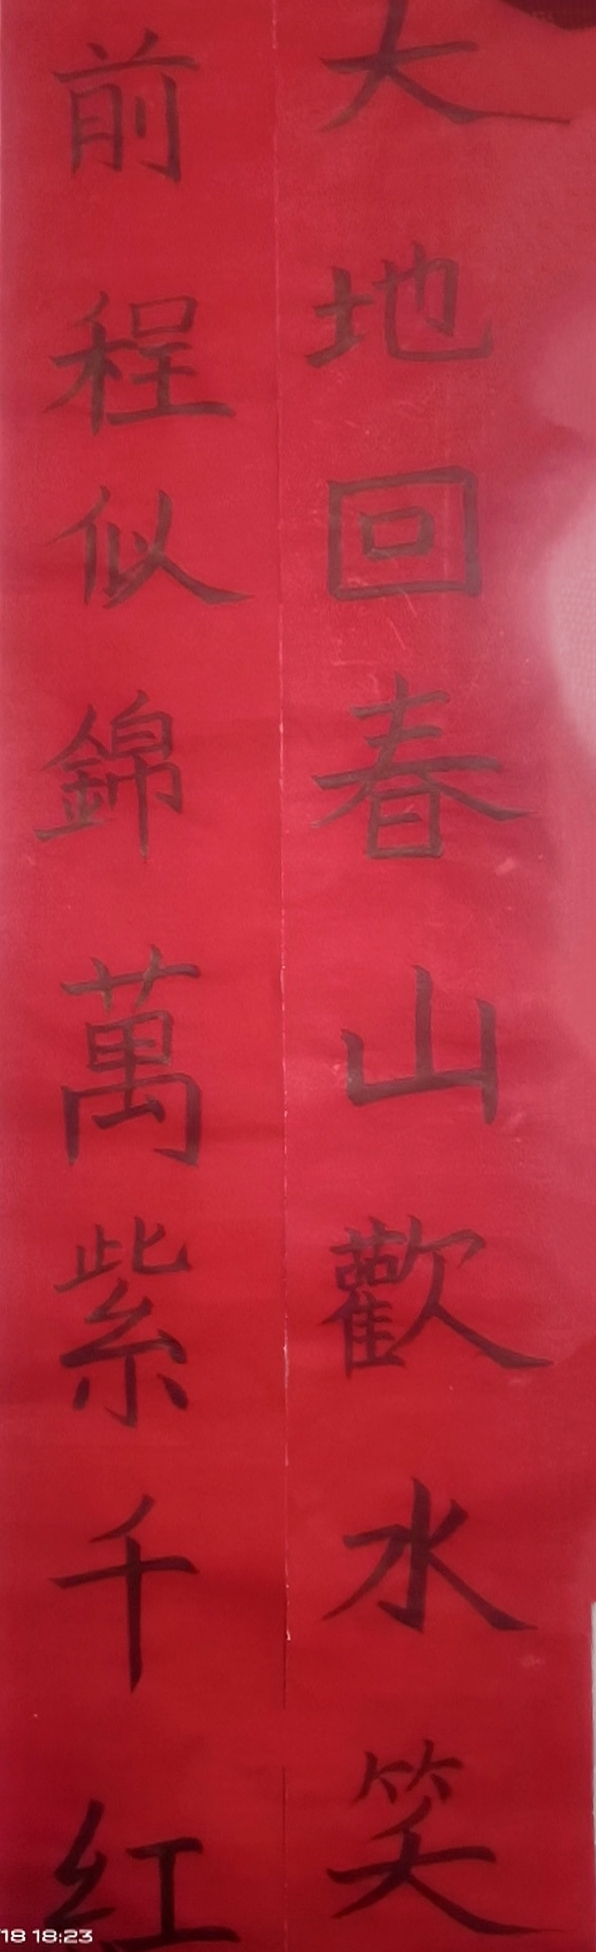 大地回春山歡水笑
前程似錦萬紫千紅
18 18:23